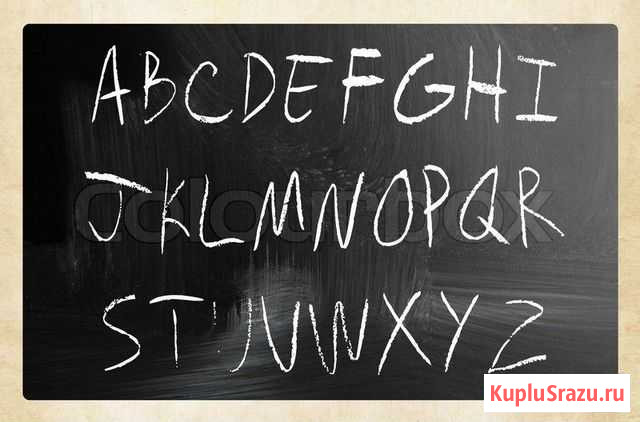 ABCDEFGHI
JKLMNOPQR
STUVWXYZ
colourbox
KupluSrazu.ru